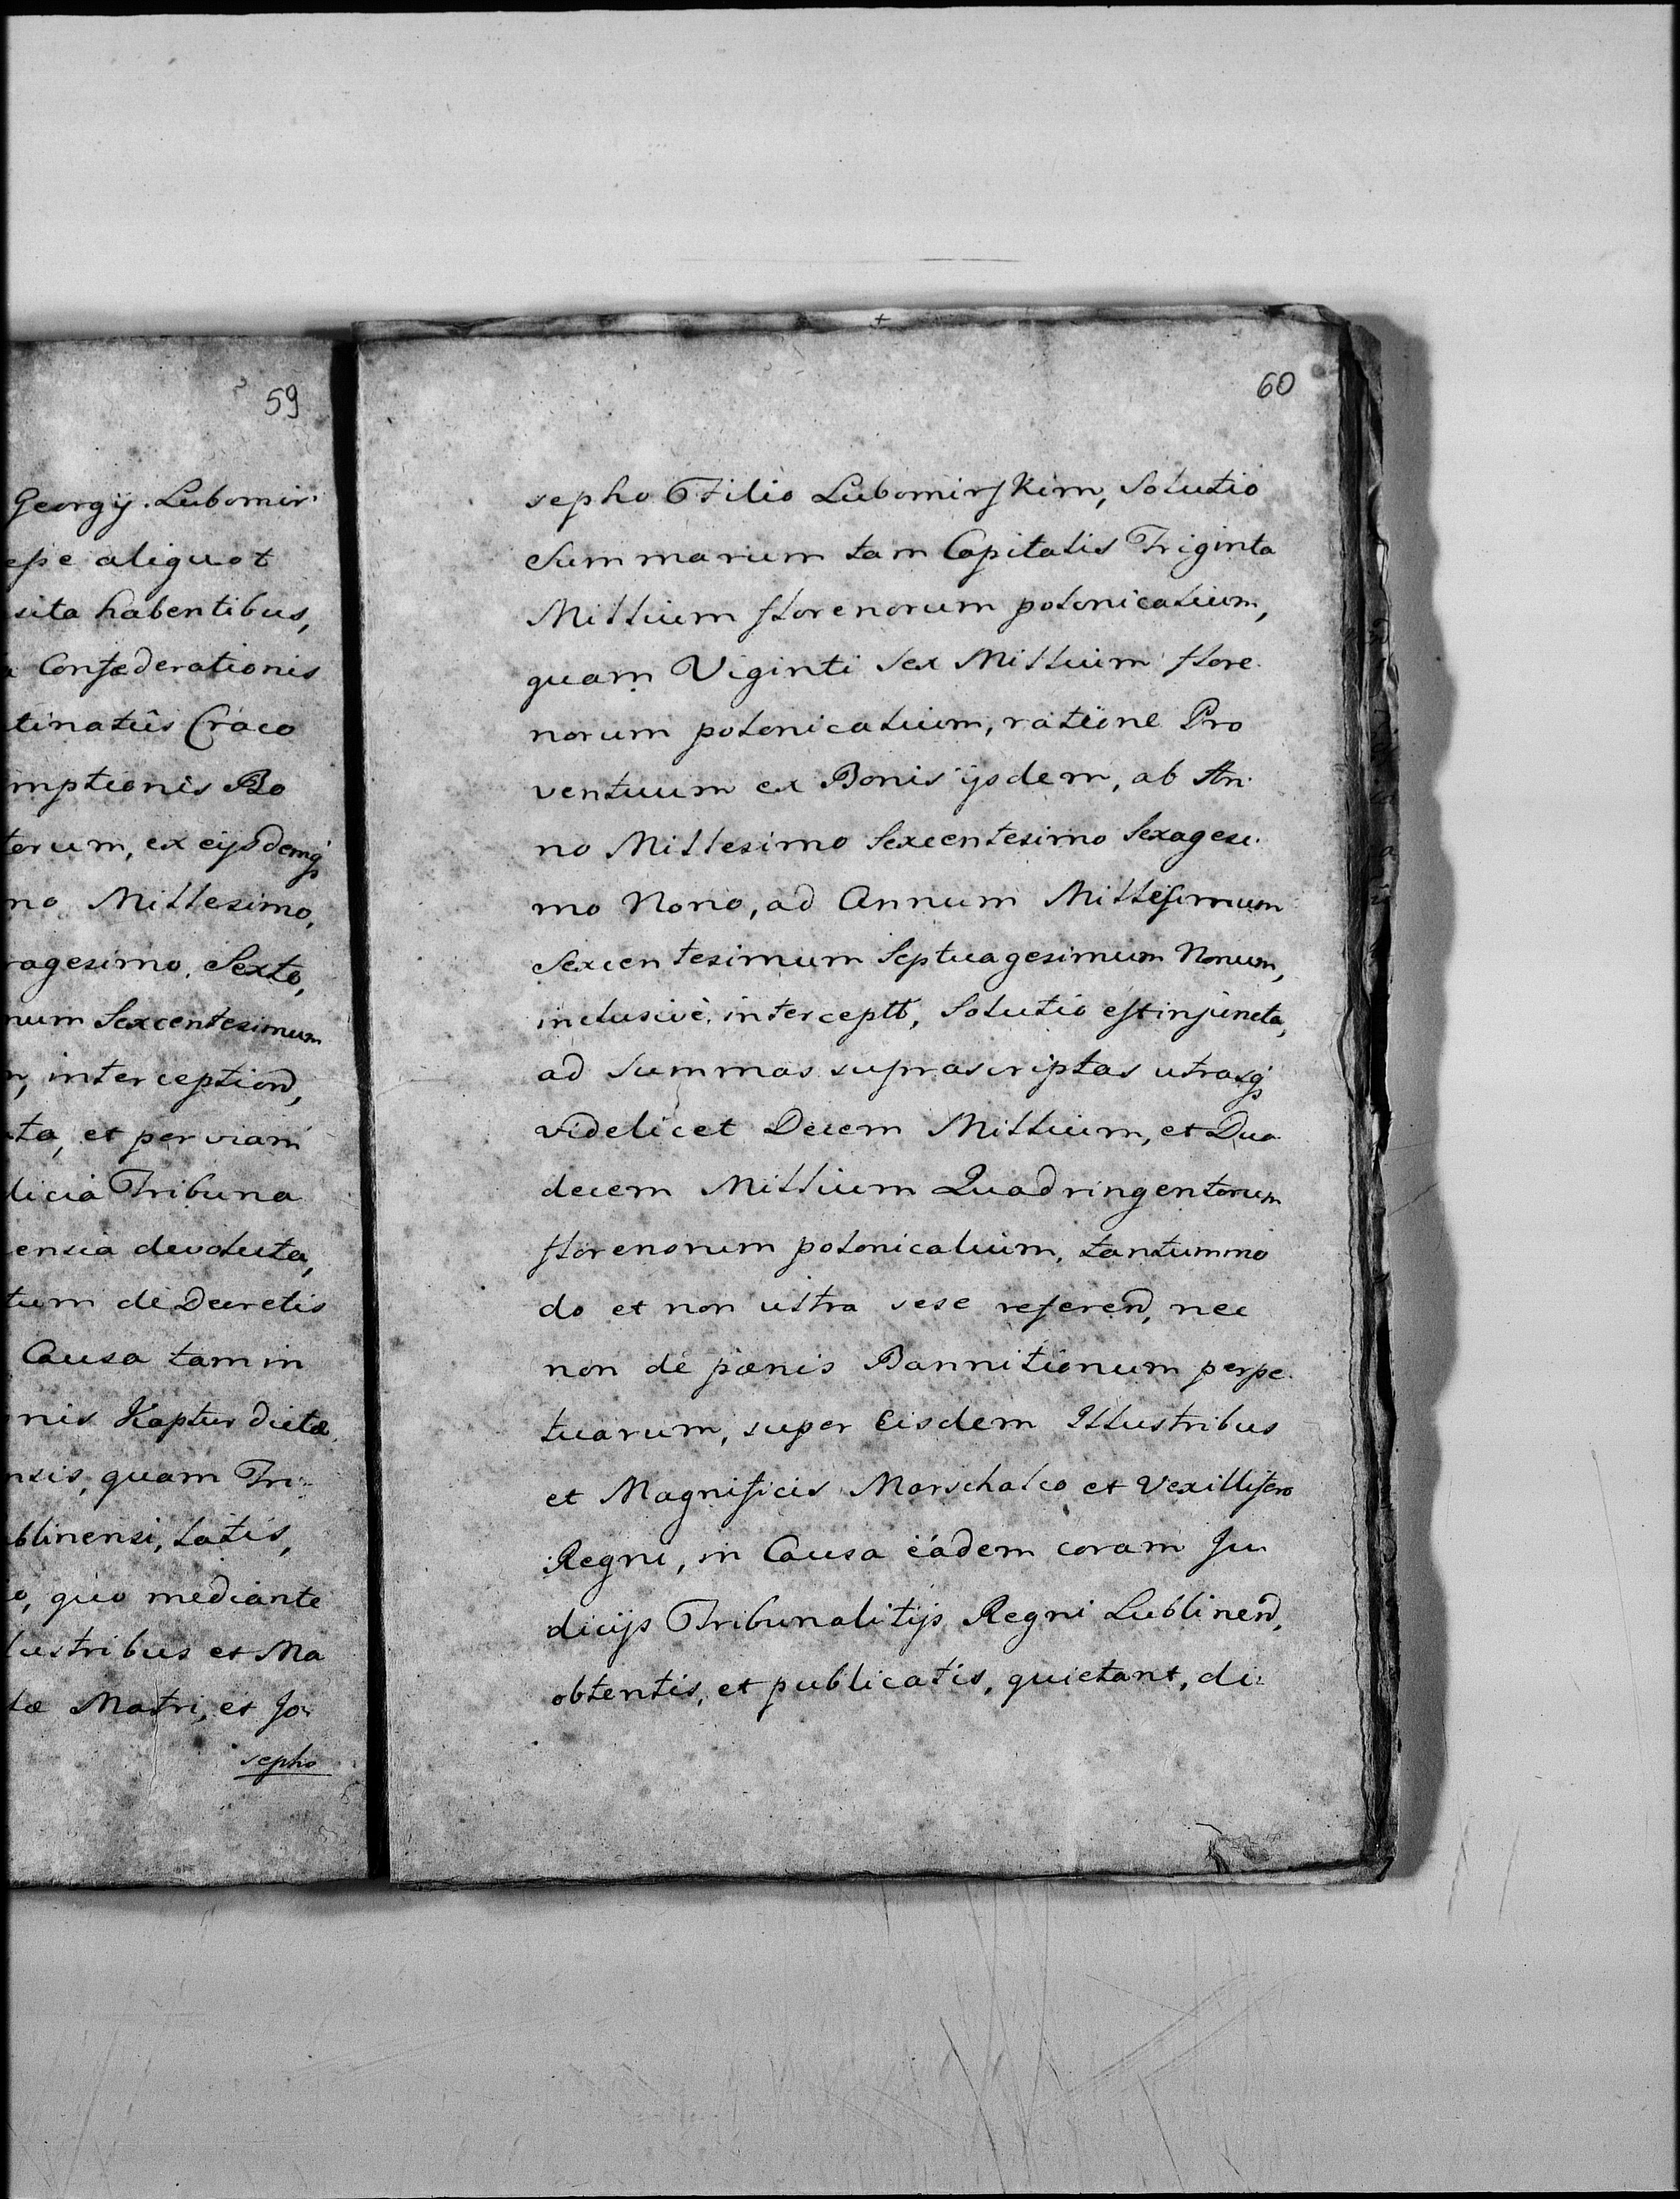 59
Georgÿ. Lubomir:
esse aliquot
sita habentibus,
Confæderationis
tinatûs Craco
mptionis Bo
torum, ex eijsdemq
no Millesimo,
ragesimo, Sexto,
num Sexcentesimum
interceptiond,
ta, et per viam
dicia Tribuna
ensia devoluta,
tum de Decretis
Causa tam in
nis Kaptur dictæ
nsis, quam Tri:
blinensi, latis,
o, quo mediante
lustribus et Ma
tæ Matri, et Jo:
sepho
60
sepho Filio Lubomirskim, Solutio
Summarum tam Capitalis Triginta
Millium florenorum polonicalium,
quam Viginti Sex Millium flore
norum polonicalium, ratione Pro
ventuum ex Bonis ijsdem, ab An:
no Millesimo Sexcentesimo Sexagesi:
mo Nono, ad Annum Millesimum
Sexcentesimum Septuagesimum Nonum,
inclusivè, interceptt, Solutio est injuncta,
ad Summas suprascriptas utrasq
videlicet Decem Millium, et Duo
decem Millium Quadringentorum
florenorum polonicalium, tantummo
do et non ultra sese referend, nec
non de pœnis Bannitionum perpe:
tuarum, super Eisdem Illustribus
et Magnificis Marschalco et Vexillifero
Regni, in Causa eâdem coram Ju
dicijs Tribunalitijs Regni Lublinend,
obtentis, et publicatis, quietant, de: